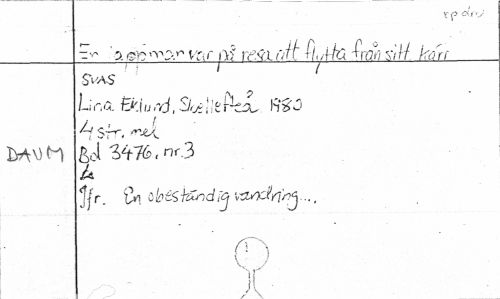 En lappman var på resa att flytta från sitt kärr
SVAS
Lina Eklund, Skellefteå 1980
4 str. mel
DAUM Bd 3476, nr. 3
Jfr. En obeständig vandring....